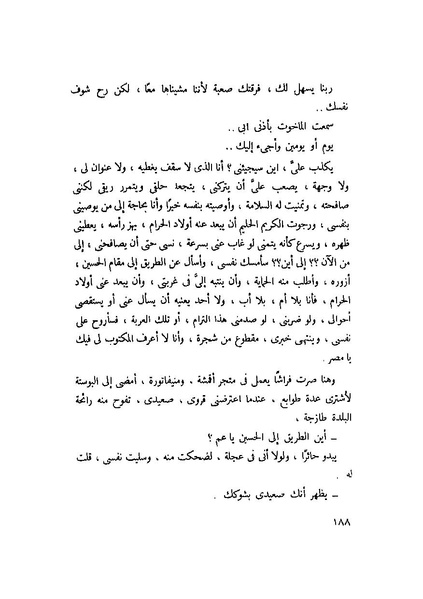 ربنا يسهل لك ، فرقتك صعبة لأننا مشيناها معًا ، لكن رح شوف
نفسك ..
سمعت الماخوت بأذنى ابى ..
يوم أو يومين وأجىء إليك ..
يكذب علىَّ ، اين سيجيئنى ؟ أنا الذى لا سقف يغطيه ، ولا عنوان لى ،
ولا وجهة ، يصعب علىَّ أن يتركنى ، يتجعد حلقى ويتمرر ريقى لكننى
صافحته ، وتمنيت له السلامة ، وأوصيته بنفسه خيرًا وأنا بحاجة إلى من يوصينى
بنفسى ، ورجوت الكريم الحليم أن يبعد عنه أولاد الحرام ، يهز رأسه ، يعطينى
ظهره ، ويسرع كأنه يتمنى لو غاب عنى بسرعة ، نسى حتى أن يصافحنى ، إلى
من الآن ؟؟ إلى أين؟؟ سأمسك نفسى ، وأسأل عن الطريق إلى مقام الحسين ،
أزوره ، وأطلب منه الحماية ، وأن ينتبه إلىَّ فى غربتى ، وأن يبعد عنى أولاد
الحرام ، فأنا بلا أم ، بلا أب ، ولا أحد يعنيه أن يسأل عنى أو يستقصى
أحوالى ، ولو ضربنى ، لو صدمنى هذا الترام ، أو تلك العربة ، فسأروح على
نفسى ، وينتهى خبرى ، مقطوع من شجرة ، وأنا لا أعرف المكتوب لى فيك
يا مصر .
وهنا صرت فراشًا يعمل فى متجر أقمشة ، ومنيفاتورة ، أمضى إلى البوستة
لأشترى عدة طوابع ، عندما اعترضنى قروى ، صعيدى ، تفوح منه رائحة
البلدة طازجة ،
ــ أين الطريق إلى الحسين يا عم ؟
يبدو حائرًا ، ولولا أنى فى عجلة ، لضحكت منه ، وسليت نفسى ، قلت
له .
ــ يظهر أنك صعيدى بشوكك .
١٨٨